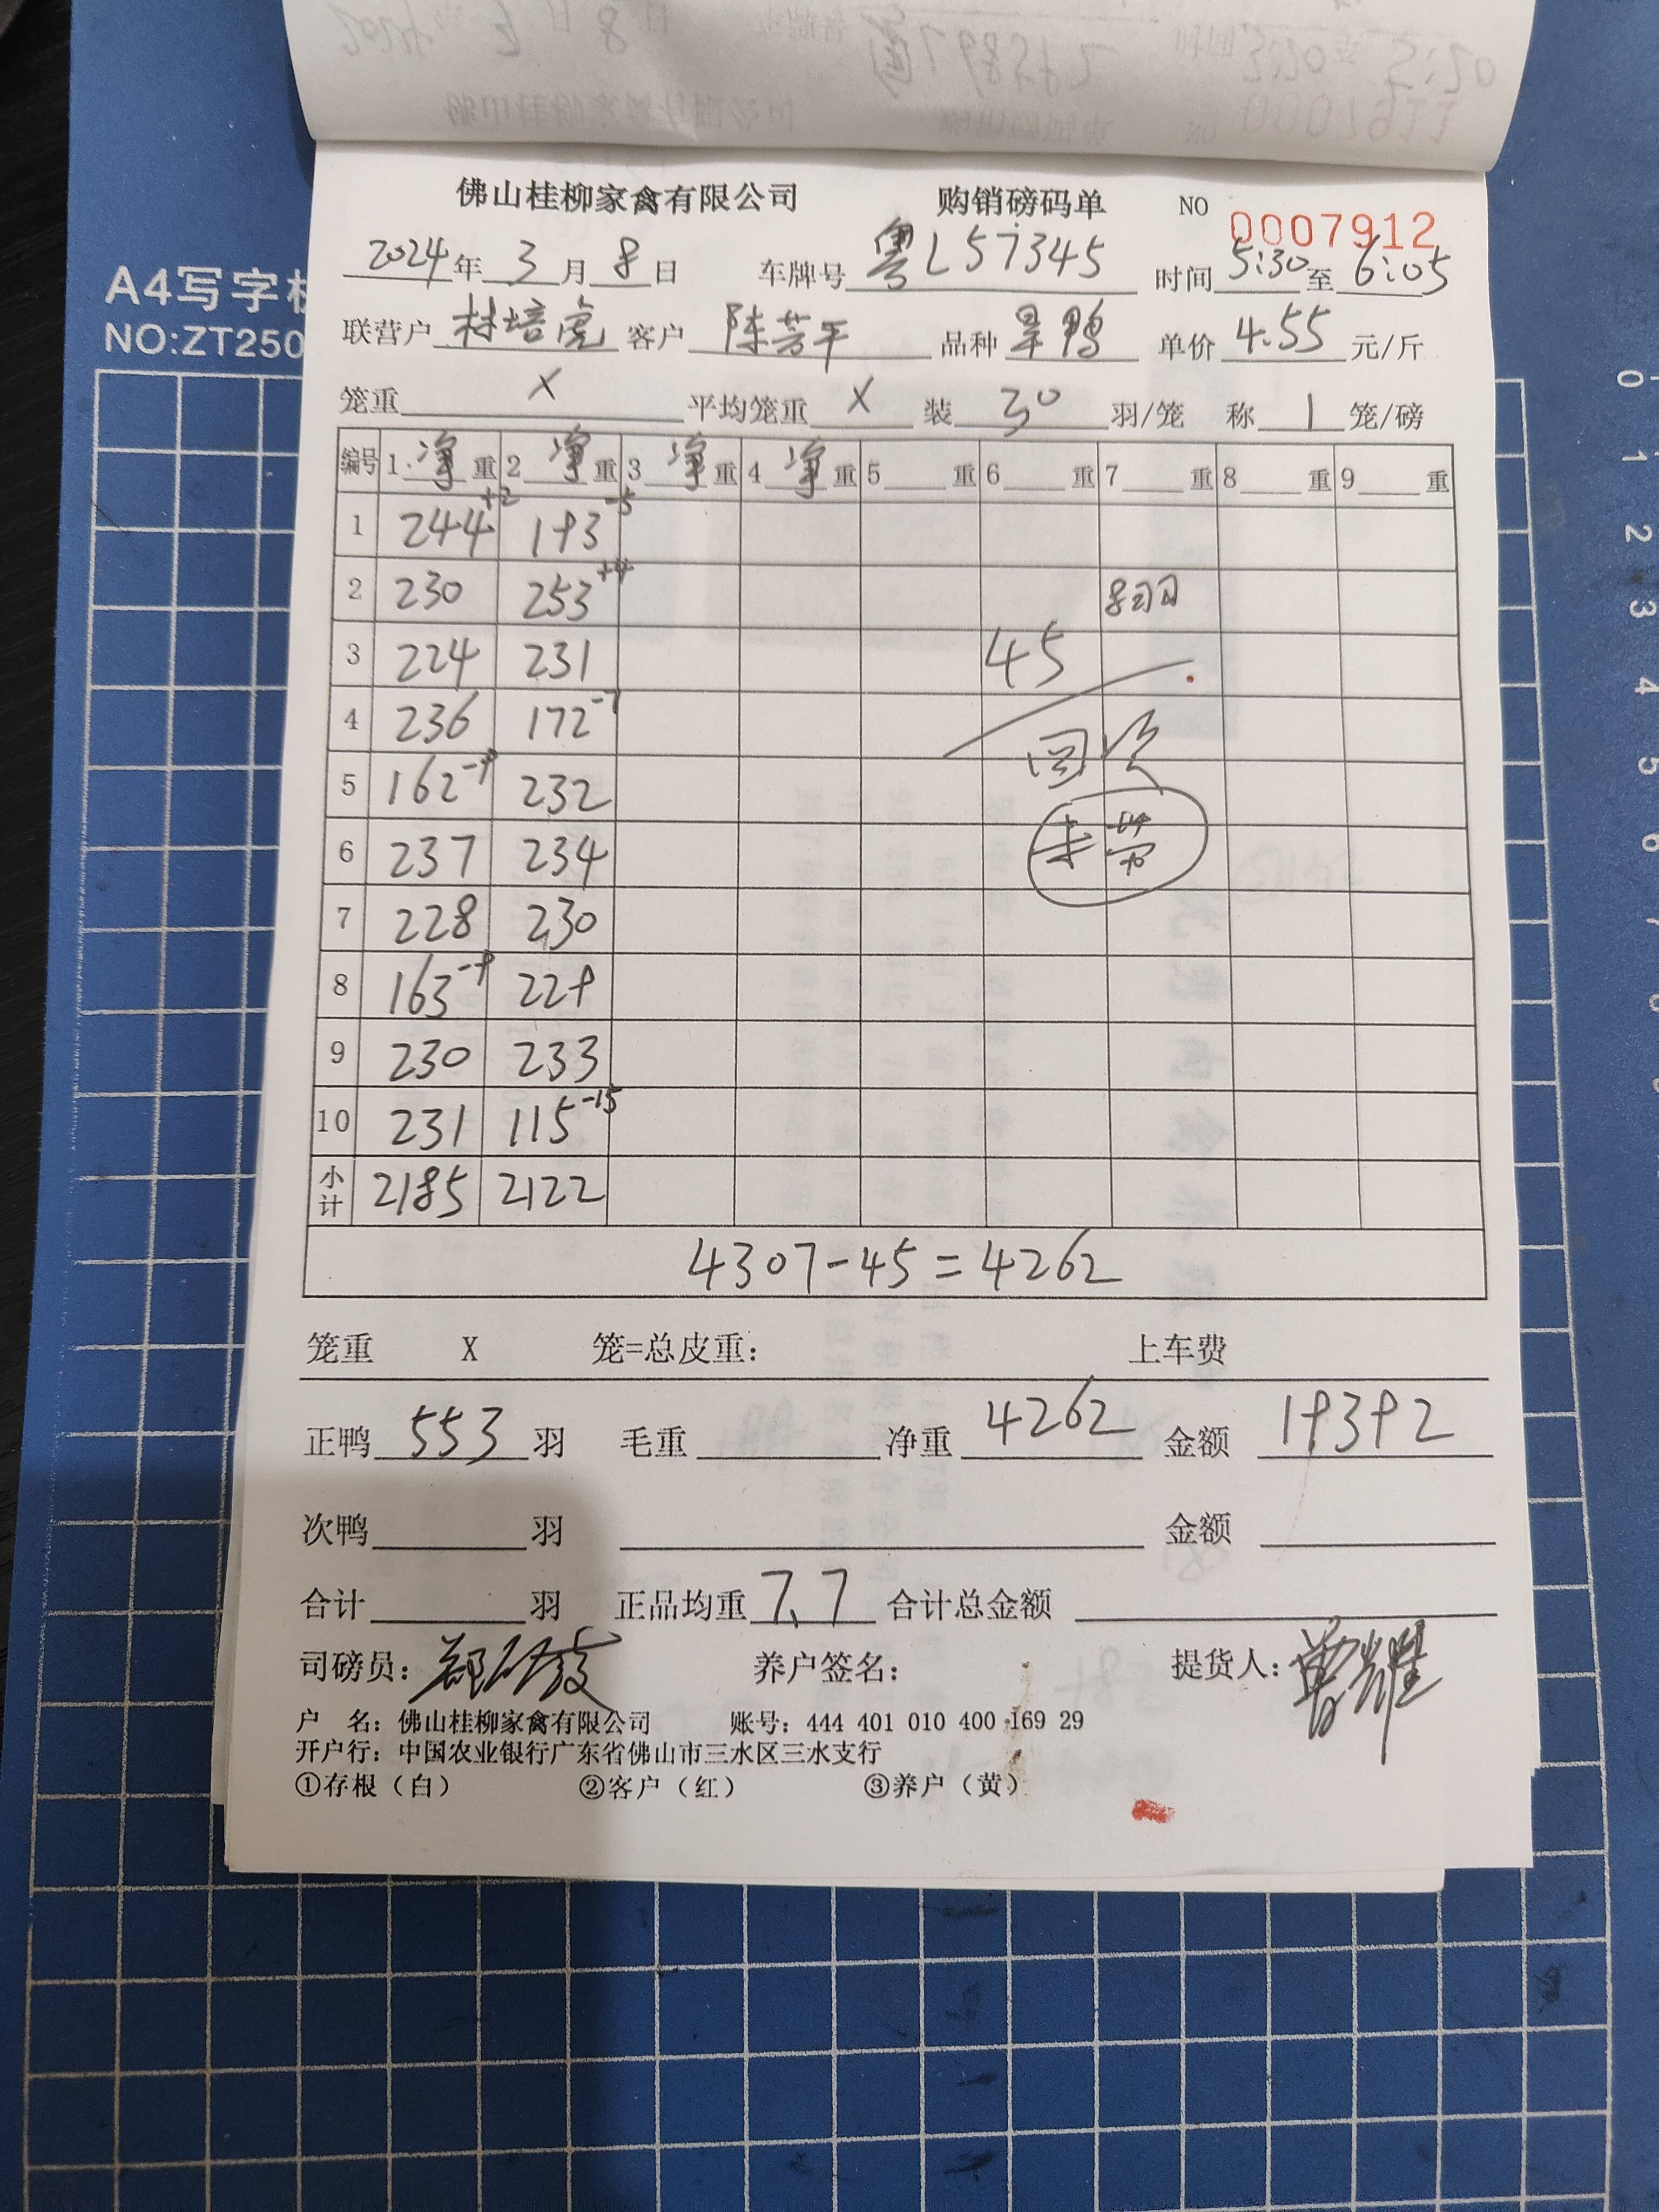 佛山桂柳家禽有限公司 购销磅码单 NO 0007912
A4写字
NO:ZT250
2024年 3月 8日 车牌号 粤L57345 时间 5:30 至 6:05
联营户 林培虎 客户 陈芳平 品种 旱鸭 单价 4.55 元/斤
笼重 X 平均笼重 X 装 30 羽/笼 称 1 笼/磅
编号 1.净重 2 净重 3 净重 4 净重 5 重 6 重 7 重 8 重 9 重
1 244+2 193-5
2 230 253+4 8羽
3 224 231 45
4 236 172-7 回
5 162-9 232
6 237 234
7 228 230
8 163-9 229
9 230 233
10 231 115-15
小计 2185 2122
4307-45=4262
笼重 X 笼=总皮重: 上车费
正鸭 553 羽 毛重 净重 4262 金额 19392
次鸭 羽 金额
合计 羽 正品均重 7.7 合计总金额
司磅员: 养户签名: 提货人: 曾耀
户 名: 佛山桂柳家禽有限公司 账号: 444 401 010 400 169 29
开户行: 中国农业银行广东省佛山市三水区三水支行
①存根(白) ②客户(红) ③养户(黄)
0
1
2
3
4
5
6
7